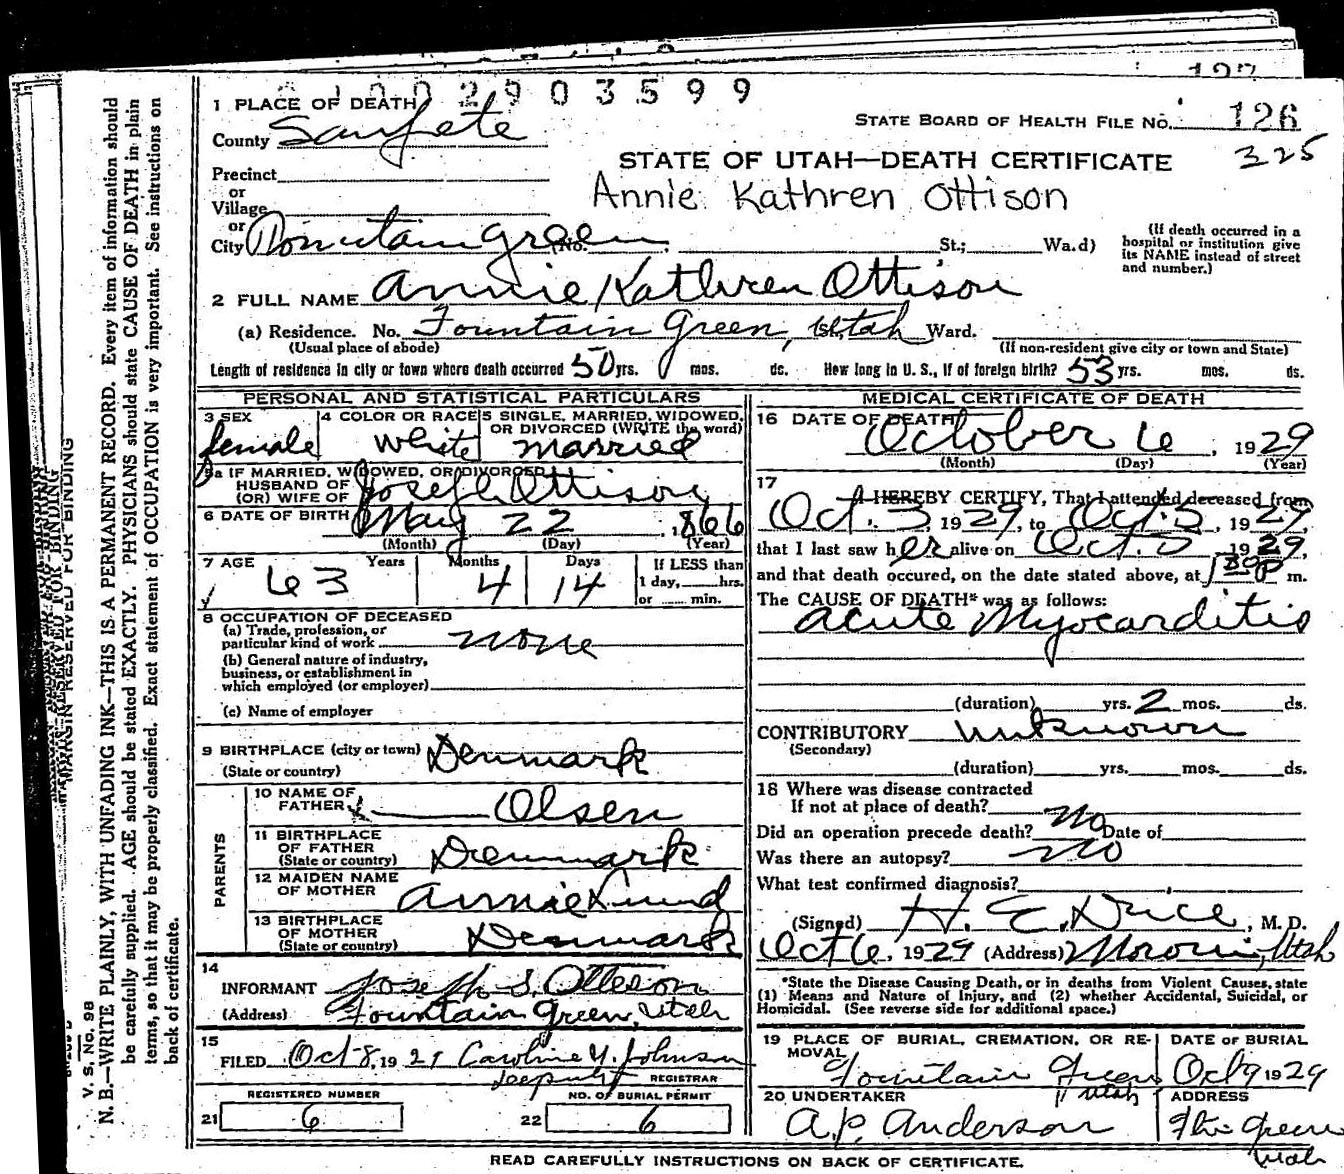 2903599
1 PLACE OF DEATH
County Sanpete
STATE BOARD OF HEALTH FILE NO. 126
325
STATE OF UTAH—DEATH CERTIFICATE
Precinct
or
Village
Annie Kathren Ottison
or
City Fountain Green (No. St.; Wa.d)
(If death occurred in a
hospital or institution give
its NAME instead of street
and number.)
2 FULL NAME Annie Kathren Ottison
(a) Residence. No. Fountain Green, Utah Ward.
(Usual place of abode) (If non-resident give city or town and State)
Length of residence in city or town where death occurred 50 yrs. mos. ds. How long in U. S., if of foreign birth? 53 yrs. mos. ds.
PERSONAL AND STATISTICAL PARTICULARS
3 SEX
female
4 COLOR OR RACE
White
5 SINGLE, MARRIED, WIDOWED,
OR DIVORCED (WRITE the word)
married
5a IF MARRIED, WIDOWED, OR DIVORCED
HUSBAND OF
(OR) WIFE OF Joseph Ottison
6 DATE OF BIRTH May 22, 1866
(Month) (Day) (Year)
7 AGE Years Months Days
63 4 14
If LESS than
1 day, hrs.
or min.
8 OCCUPATION OF DECEASED
(a) Trade, profession, or
particular kind of work none
(b) General nature of industry,
business, or establishment in
which employed (or employer)
(c) Name of employer
9 BIRTHPLACE (city or town) Denmark
(State or country)
PARENTS
10 NAME OF
FATHER Olsen
11 BIRTHPLACE
OF FATHER
(State or country) Denmark
12 MAIDEN NAME
OF MOTHER Annie Lund
13 BIRTHPLACE
OF MOTHER
(State or country) Denmark
14
INFORMANT Joseph S. Otteson
(Address) Fountain Green, Utah
15
FILED Oct 8, 1929 Caroline Y. Johnson
REGISTRAR
REGISTERED NUMBER
21 6
NO. OF BURIAL PERMIT
22 6
MEDICAL CERTIFICATE OF DEATH
16 DATE OF DEATH
October 6, 1929
(Month) (Day) (Year)
17
I HEREBY CERTIFY, That I attended deceased from
Oct. 3, 1929, to Oct. 5, 1929,
that I last saw her alive on Oct. 5 1929,
and that death occured, on the date stated above, at 130 P m.
The CAUSE OF DEATH* was as follows:
Acute Myocarditis
(duration) yrs. 2 mos. ds.
CONTRIBUTORY unknown
(Secondary)
(duration) yrs. mos. ds.
18 Where was disease contracted
If not at place of death?
Did an operation precede death? No Date of
Was there an autopsy? No
What test confirmed diagnosis?
(Signed) H. E. Dice, M. D.
Oct 6, 1929 (Address) Moroni, Utah
*State the Disease Causing Death, or in deaths from Violent Causes, state
(1) Means and Nature of Injury, and (2) whether Accidental, Suicidal, or
Homicidal. (See reverse side for additional space.)
19 PLACE OF BURIAL, CREMATION, OR RE-
MOVAL
Fountain Green
Utah
DATE OF BURIAL
Oct 9 1929
20 UNDERTAKER
A.P. Anderson
ADDRESS
Ftn Green
Utah
READ CAREFULLY INSTRUCTIONS ON BACK OF CERTIFICATE.
MARGIN RESERVED FOR BINDING
V. S. No. 98
N. B.—WRITE PLAINLY, WITH UNFADING INK—THIS IS A PERMANENT RECORD. Every item of information should
be carefully supplied. AGE should be stated EXACTLY. PHYSICIANS should state CAUSE OF DEATH in plain
terms, so that it may be properly classified. Exact statement of OCCUPATION is very important. See instructions on
back of certificate.